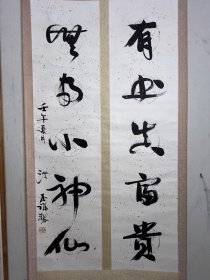 有书真富贵
无事小神仙
壬午夏月